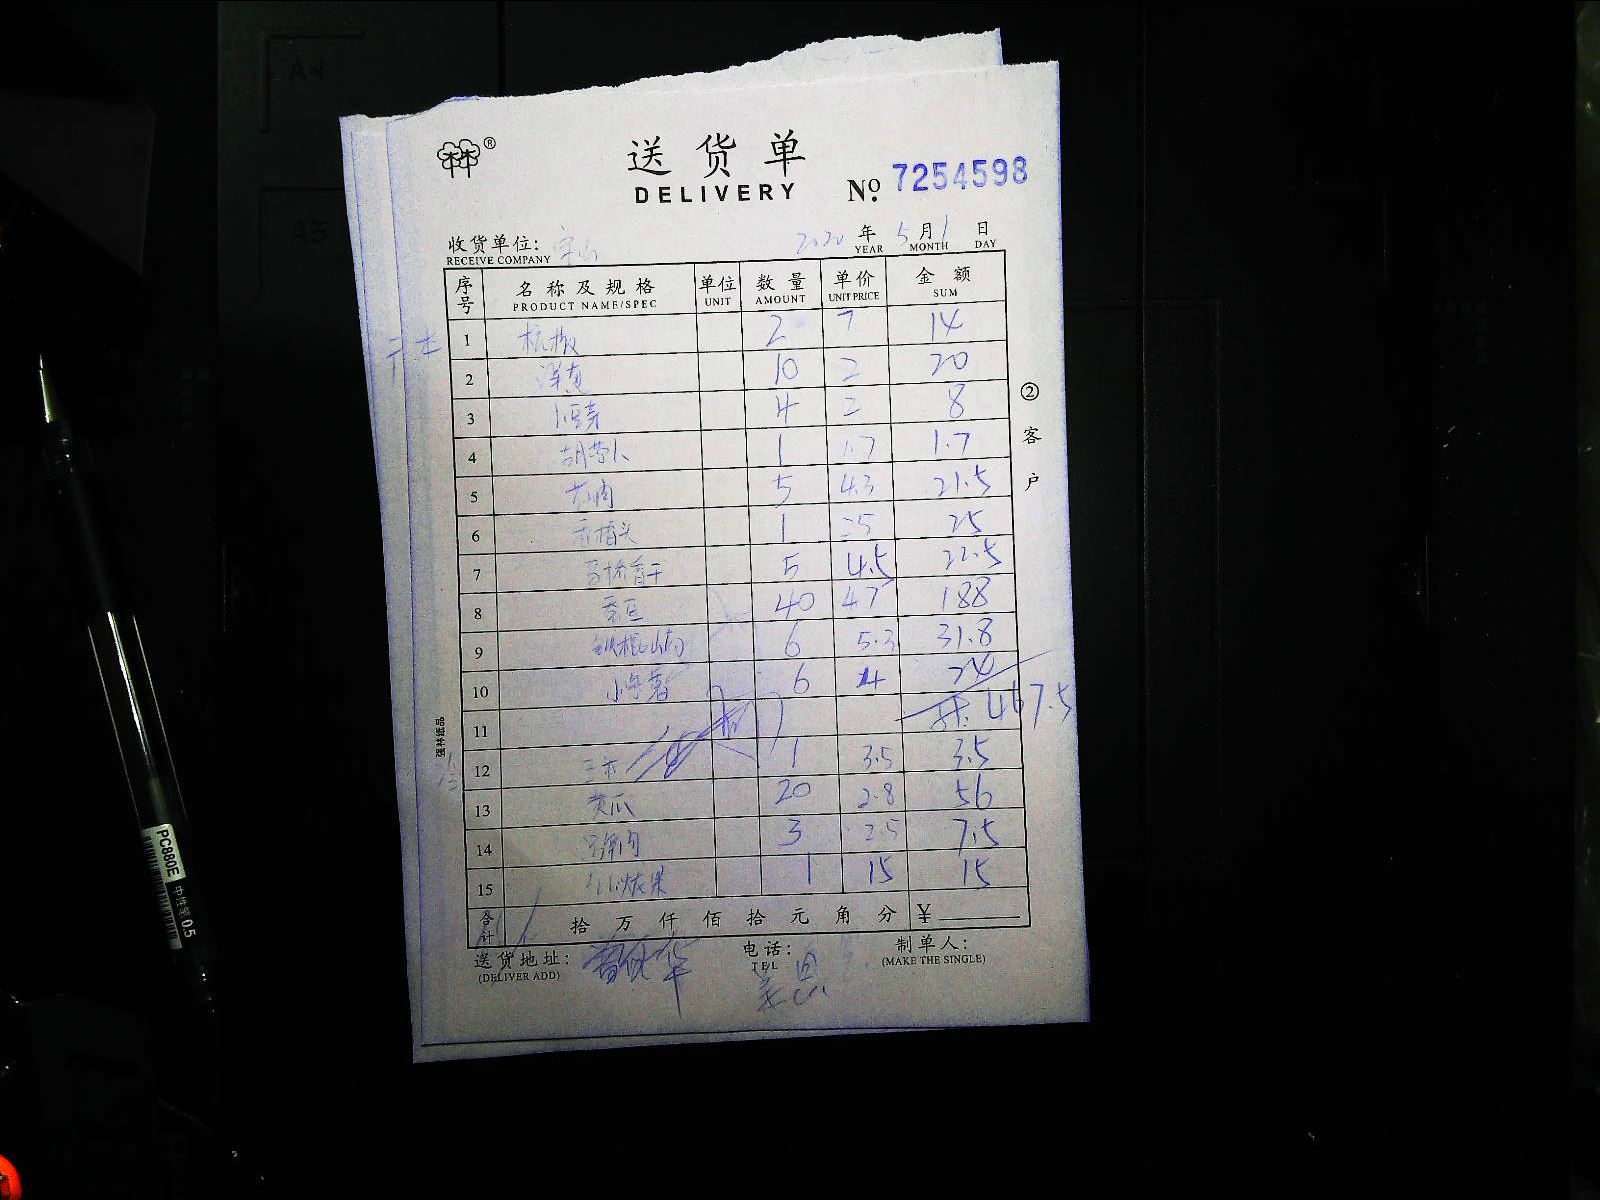 送货单
DELIVERY
№ 7254598
收货单位:
RECEIVE COMPANY
2020 年 5 月 1 日
YEAR MONTH DAY
序号 名称及规格 单位 数量 单价 金额
PRODUCT NAME/SPEC UNIT AMOUNT UNIT PRICE SUM
1 杭椒 2 7 14
2 洋葱 10 2 20
3 豆芽 4 2 8
4 胡萝卜 1 1.7 1.7
5 5 4.3 21.5
6 1 25 25
7 香干 5 4.5 22.5
8 40 4.7 188
9 6 5.3 31.8
10 6 4 24
11 467.5
12 1 3.5 3.5
13 黄瓜 20 2.8 56
14 3 2.5 7.5
15 1 15 15
合计 拾 万 仟 佰 拾 元 角 分 ¥
送货地址: 电话: 制单人:
(DELIVER ADD) TEL (MAKE THE SINGLE)
②客户
强林纸品
PC880E
中性笔 0.5
A4
A5